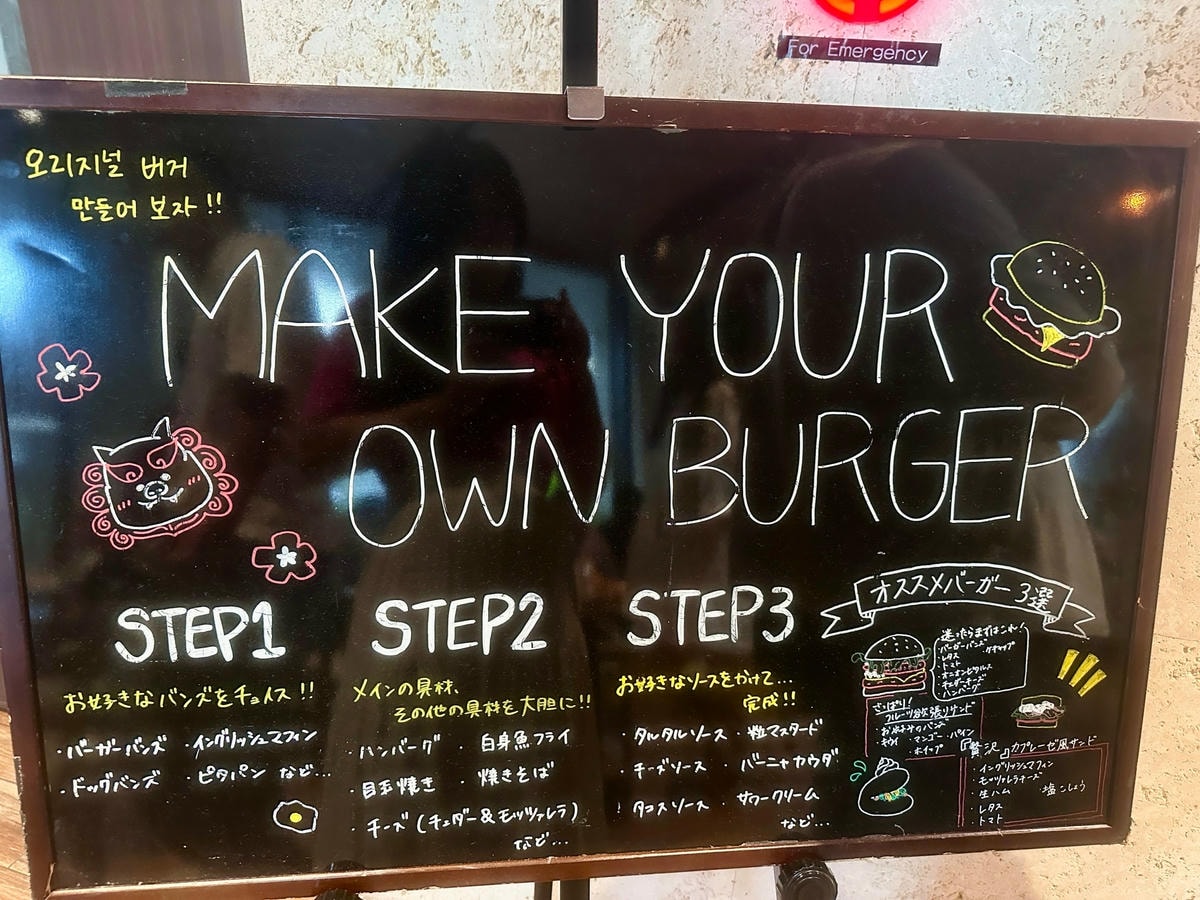 For Emergency
오리지널 버거
만들어 보자!!
MAKE YOUR
OWN BURGER
STEP1
お好きなバンズをチョイス!!
・バーガーバンズ ・イングリッシュマフィン
・ドッグバンズ ・ピタパン など...
STEP2
メインの具材、
その他の具材を大胆に!!
・ハンバーグ ・白身魚フライ
・目玉焼き ・焼きそば
・チーズ(チェダー&モッツァレラ)
など...
STEP3
お好きなソースをかけて...
完成!!
・タルタルソース ・粒マスタード
・チーズソース ・バーニャカウダ
・タコスソース ・サワークリーム
など...
オススメバーガー3選
迷ったらまずはこれ!
・バーガーバンズ ・ケチャップ
・レタス
・トマト
・オニオンピクルス
・チェダーチーズ
・ハンバーグ
さっぱり!
フルーツ欲張りサンド
・お好みのバンズ
・キウイ ・マンゴー ・パイン
・ホイップ
『贅沢』カプレーゼ風サンド
・イングリッシュマフィン
・モッツァレラチーズ
・生ハム ・塩こしょう
・レタス
・トマト